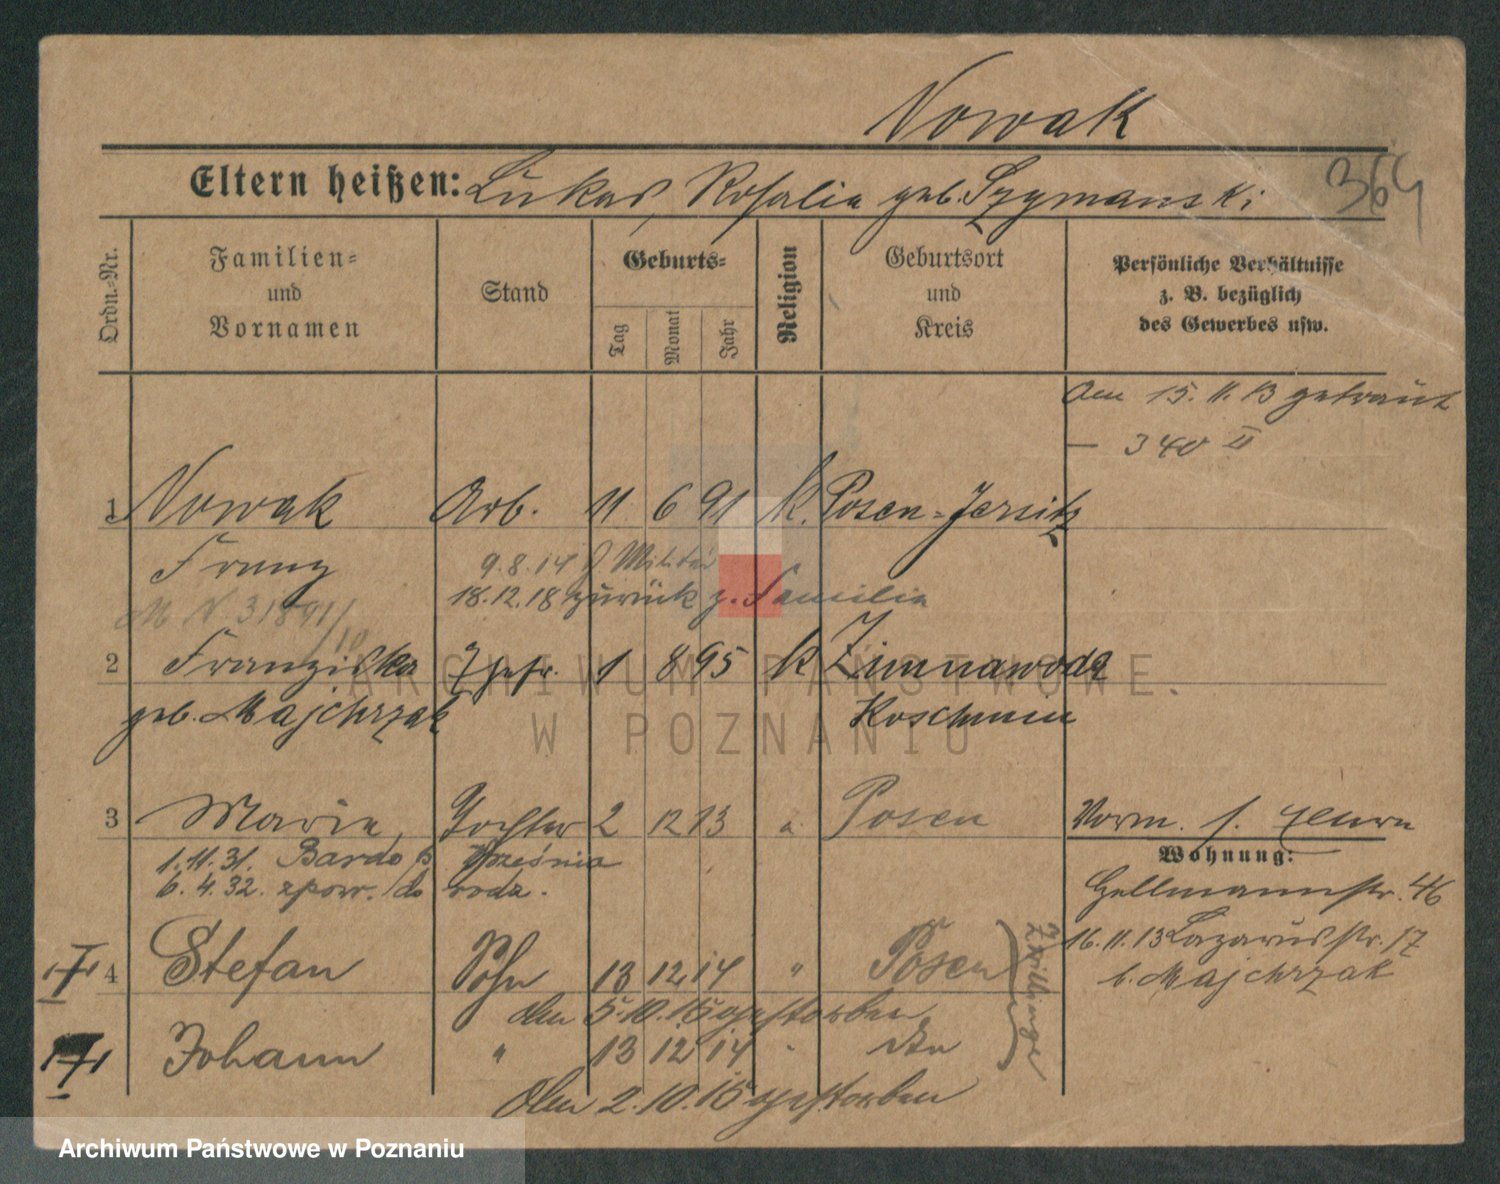 Nowak
Eltern heißen: Lukas, Rosalie geb. Szymanski
364
Ordn.-Nr.
Familien- und Vornamen
Stand
Geburts-
Tag
Monat
Jahr
Religion
Geburtsort und Kreis
Persönliche Verhältnisse z. B. bezüglich des Gewerbes usw.
Am 15. 11. 13 getraut
— 340 II
1 Nowak Arb. 11 6 91 k. Posen-Jersitz
Franz 9.8.14 z. Militär
18.12.18 zurück z. Familie
2 Franziska Ehefr. 1 8 95 k Zimnawoda
geb. Majchrzak Koschmin
3 Marie, Tochter 2 12 13 " Posen
Vorm. s.
1.11.31. Bardo p. Września
6.4.32. zpow. do rodz.
Wohnung:
Hellmannstr. 46
16.11.13 Lazarusstr. 17
b. Majchrzak
4 Stefan Sohn 13 12 14 " Posen
Zwillinge
den 5.10.15 gestorben
Johann " 13 12 14 " dto
den 2.10.15 gestorben
ARCHIWUM PAŃSTWOWE
W POZNANIU
Archiwum Państwowe w Poznaniu